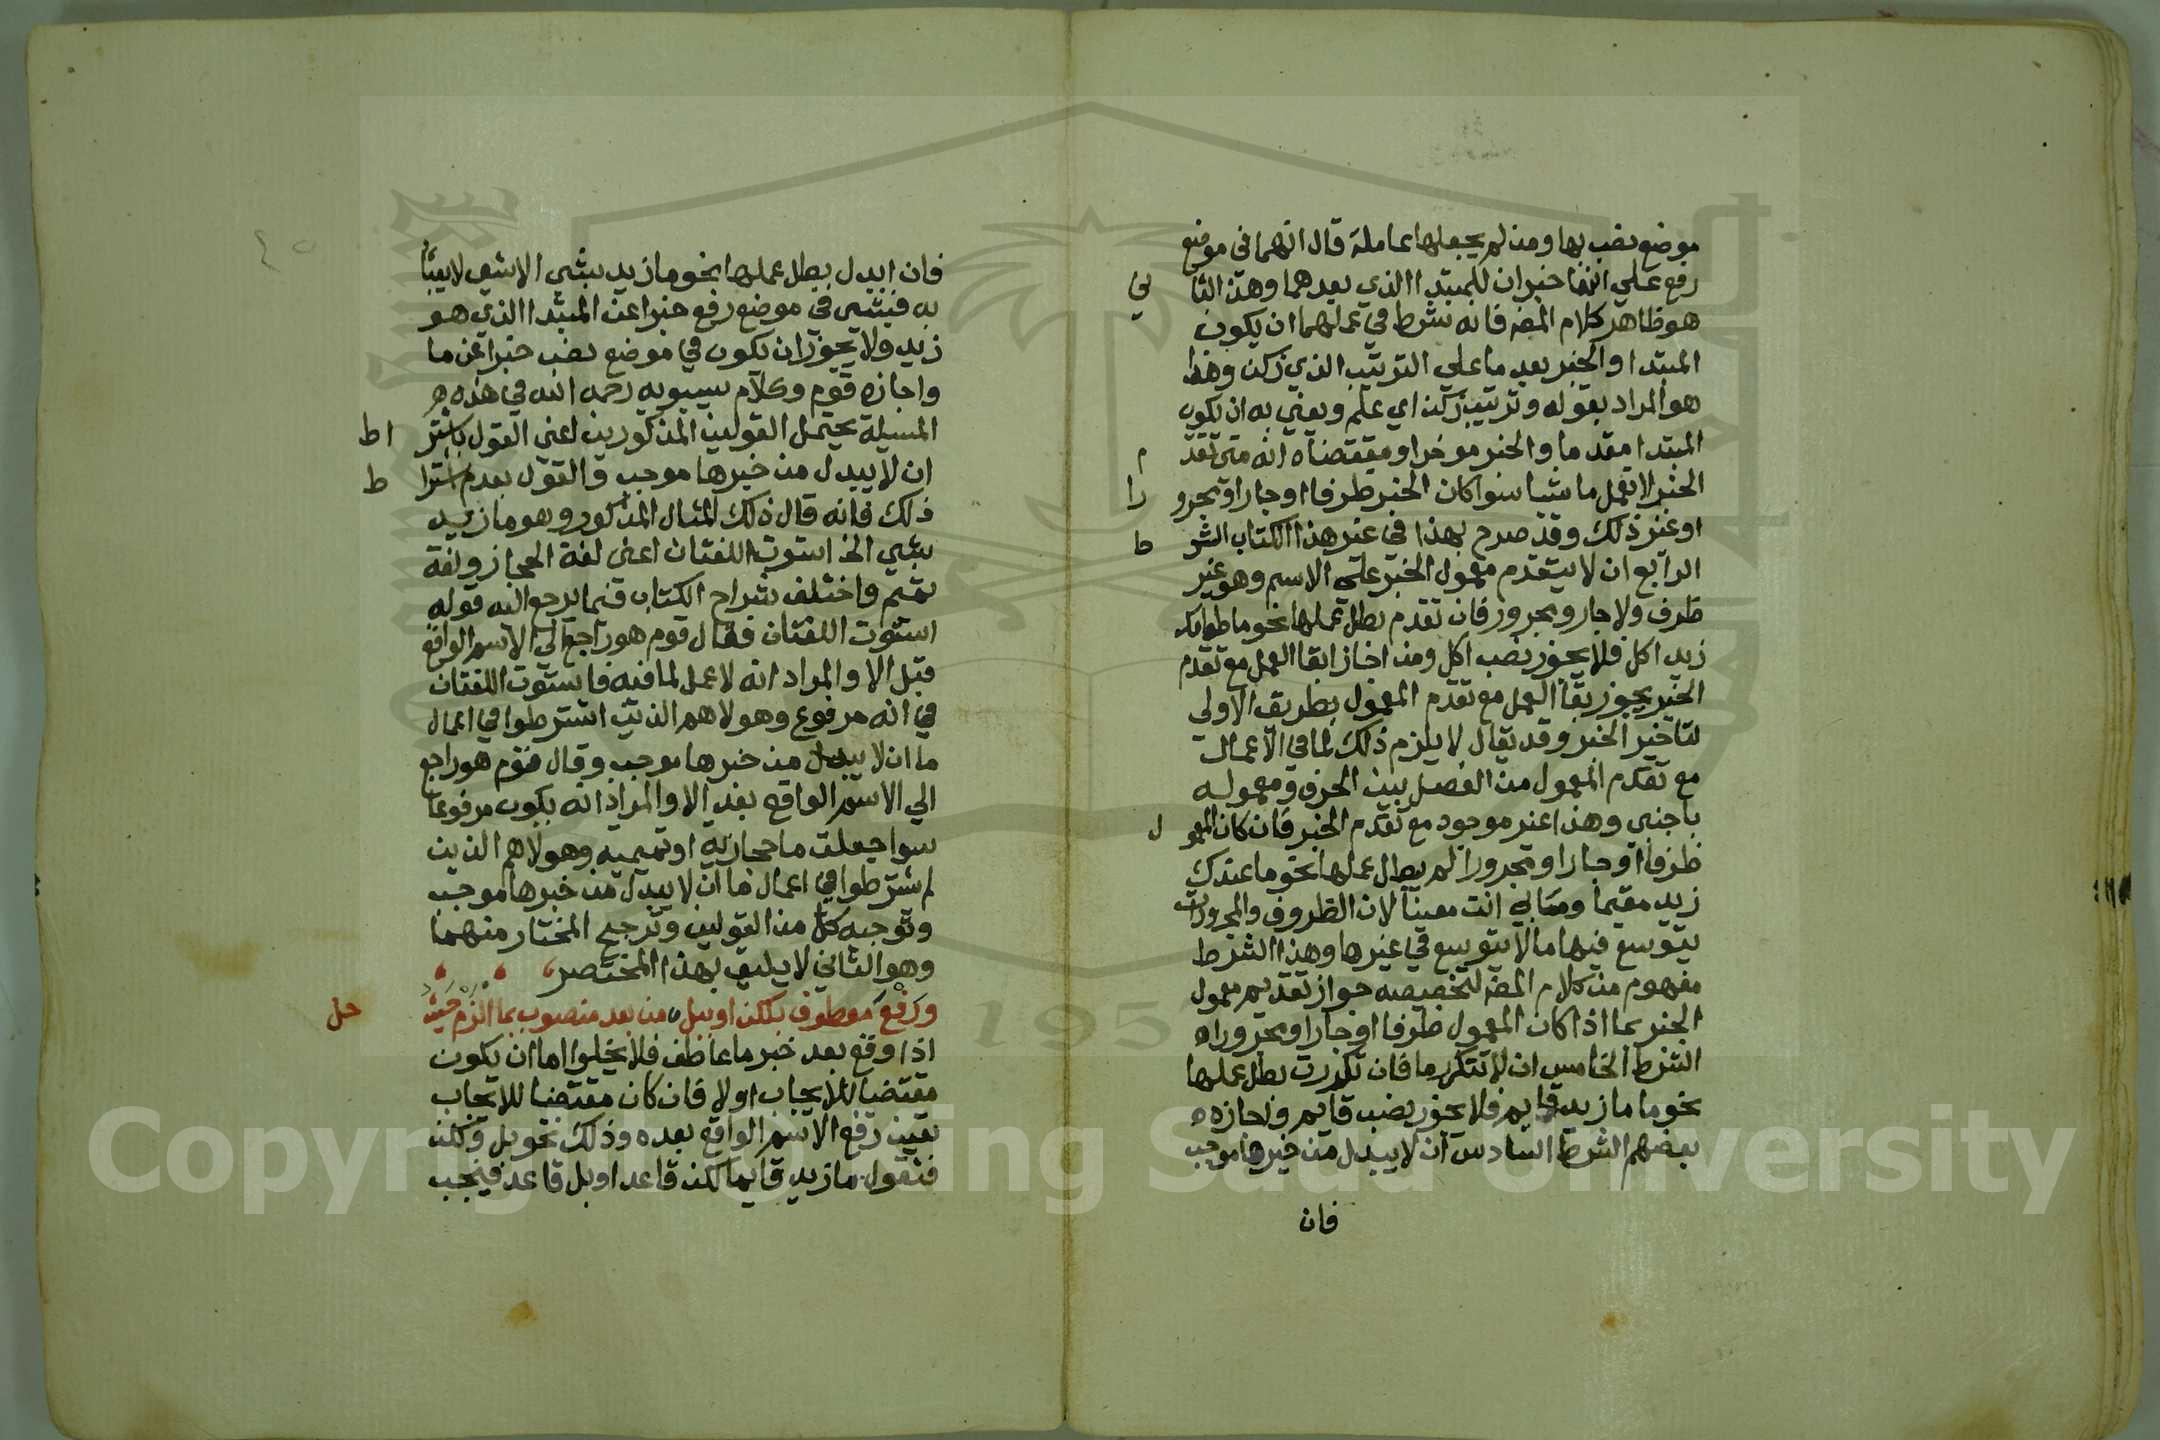 موضع نصب بها ومن لم يجعلها عاملة قال انهما في موضع
رفع على انهما خبران للمبتدا الذي بعدهما وهذا الثاني
هو ظاهر كلام المص فانه شرط في عملهما ان يكون
المبتدا والخبر بعد ما على الترتيب الذي زكن وهذا
هو المراد بقوله وترتيب زكن اي علم ويعني به ان يكون
المبتدا مقدما والخبر موخرا ومقتضاه انه متى تقدم
الخبر لا تعمل ما شيا سوا كان الخبر ظرفا او جارا ومجرورا
او غير ذلك وقد صرح بهذا في غير هذا الكتاب الشرط
الرابع ان لا يتقدم معمول الخبر على الاسم وهو غير
ظرف ولا جار ومجرور فان تقدم بطل عملها نحو ما طعامك
زيد اكل فلا يجوز نصب اكل ومن اجاز ابقا العمل مع تقدم
الخبر يجوز بقا العمل مع تقدم المعمول بطريق الاولى
لتاخير الخبر وقد يقال لا يلزم ذلك لما في الاعمال
مع تقدم المعمول من الفصل بين الحرف ومعموله
باجنبي وهذا غير موجود مع تقدم الخبر فان كان المعمول
ظرفا او جارا ومجرورا لم يبطل عملها نحو ما عندك
زيد مقيما وما بي انت معينا لان الظروف والمجرورات
يتوسع فيها ما لا يتوسع في غيرها وهذا الشرط
مفهوم من كلام المص لتخصيصه جواز تقديم معمول
الخبر بما اذا كان المعمول ظرفا او جارا ومجرورا ه
الشرط الخامس ان لا تتكرر ما فان تكررت بطل عملها
نحو ما ما زيد قايم فلا يجوز نصب قايم واجازه ه
بعضهم الشرط السادس ان لا يبدل من خبرها موجب
فان
فان ابدل بطل عملها نحو ما زيد بشي الا شي لا يعبا
به فبشي في موضع رفع خبرا عن المبتدا الذي هو
زيد ولا يجوز ان يكون في موضع نصب خبرا عن ما
واجازه قوم وكلام سيبويه رحمه الله في هذه ه
المسيلة يحتمل القولين المذكورين اعني القول باشتراط
ان لا يبدل من خبرها موجب والقول بعدم اشتراط
ذلك فانه قال ذلك المثال المذكور وهو ما زيد
بشي الخ استوت اللغتان اعني لغة الحجاز ولغة
تميم واختلف شراح الكتاب فيما يرجع اليه قوله
استوت اللغتان فقال قوم هو راجع الى الاسم الواقع
قبل الا والمراد انه لا عمل لما فيه فاستوت اللغتان
في انه مرفوع وهولاهم الذين اشترطوا في اعمال
ما ان لا يبدل من خبرها موجب وقال قوم هو راجع
الي الاسم الواقع بعد الا والمراد انه يكون مرفوعا
سوا جعلت ما حجازية او تميمية وهولاهم الذين
لم اشترطوا في اعمال ما ان لا يبدل من خبرها موجب
وتوجيه كل من القولين وترجيح المختار منهما
وهو الثاني لا يليق بهذا المختصر
ورفع معطوف بلكن او ببل من بعد منصوب بما الزم حيث حل
اذا وقع بعد خبر ما عاطف فلا يخلوا اما ان يكون
مقتضيا للايجاب اولا فان كان مقتضيا للايجاب
تعين رفع الاسم الواقع بعده وذلك نحو بل ولكن
فتقول ما زيد قايما لكن قاعد او بل قاعد فيجب
Copyright © King Saud University
195